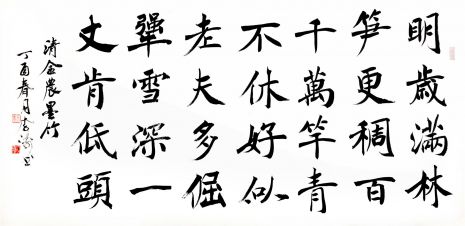 明歲滿林
笋更稠百
千萬竿青
不休好似
老夫多倔
犟雪深一
丈肯低頭
清金農墨竹
丁酉春月